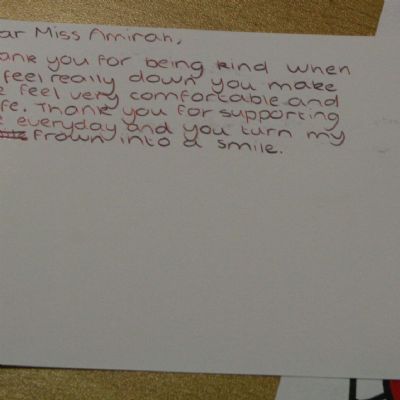 ar Miss Amirah,
ank you for being kind when
feel really down you make
e feel very comfortable and
fe. Thank you for supporting
e everyday and you turn my
frown into a smile.